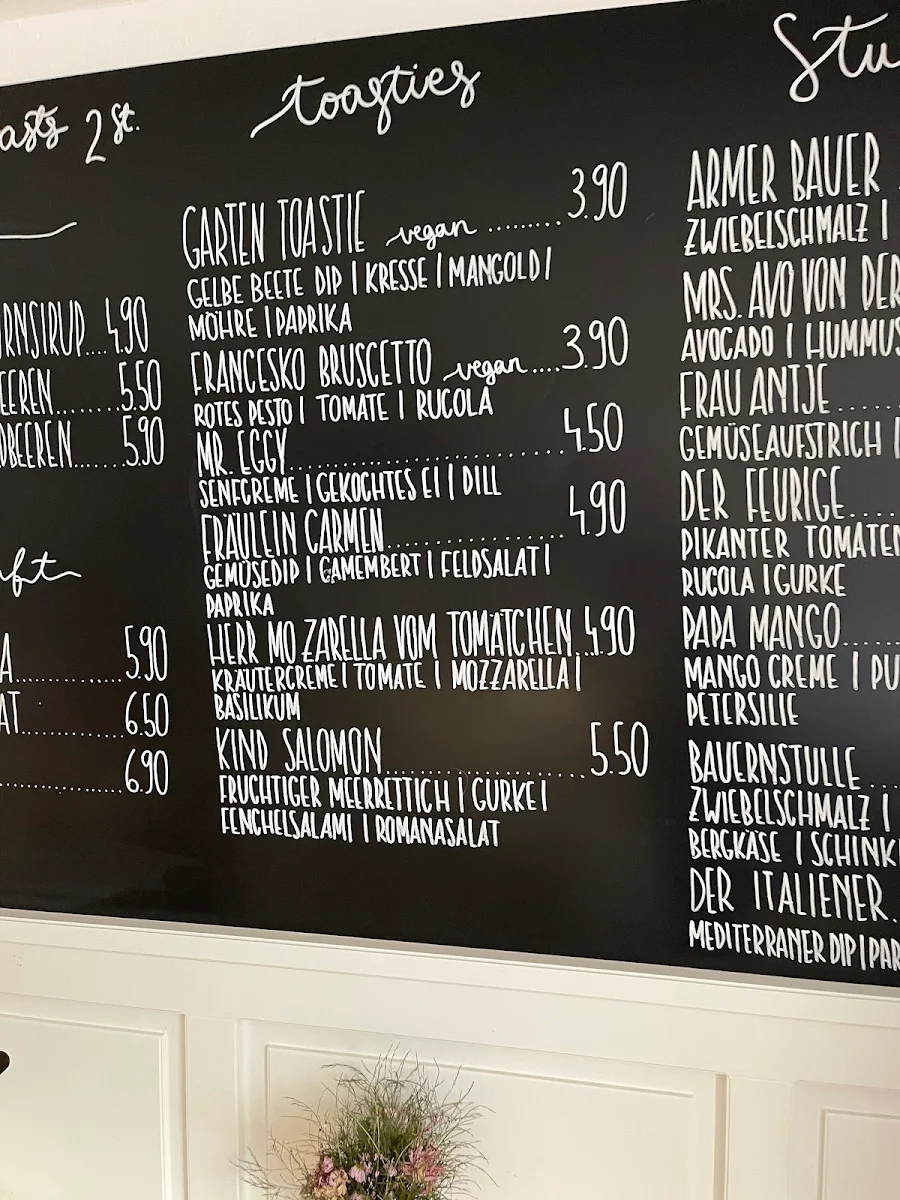 2 St.
4.90
5.50
5.90
5.90
6.50
6.90
toasties
GARTEN TOASTIE vegan ......... 3.90
GELBE BEETE DIP | KRESSE | MANGOLD |
MÖHRE | PAPRIKA
FRANCESKO BRUSCETTO vegan .... 3.90
ROTES PESTO | TOMATE | RUCOLA
MR. EGGY ........................ 4.50
SENFCREME | GEKOCHTES EI | DILL
FRÄULEIN CARMEN ................ 4.90
GEMÜSEDIP | CAMEMBERT | FELDSALAT |
PAPRIKA
HERR MO ZARELLA VOM TOMÄTCHEN ... 4.90
KRÄUTERCREME | TOMATE | MOZZARELLA |
BASILIKUM
KIND SALOMON ................... 5.50
FRUCHTIGER MEERRETTICH | GURKE |
FENCHELSALAMI | ROMANASALAT
Stu
ARMER BAUER
ZWIEBELSCHMALZ |
MRS. AVO VON DER
AVOCADO | HUMMUS
FRAU ANTJE ......
GEMÜSEAUFSTRICH |
DER FEURIGE ....
PIKANTER TOMATEN
RUCOLA | GURKE
PAPA MANGO .....
MANGO CREME | PU
PETERSILIE
BAUERNSTULLE ....
ZWIEBELSCHMALZ |
BERGKÄSE | SCHINK
DER ITALIENER .
MEDITERRANER DIP | PAR